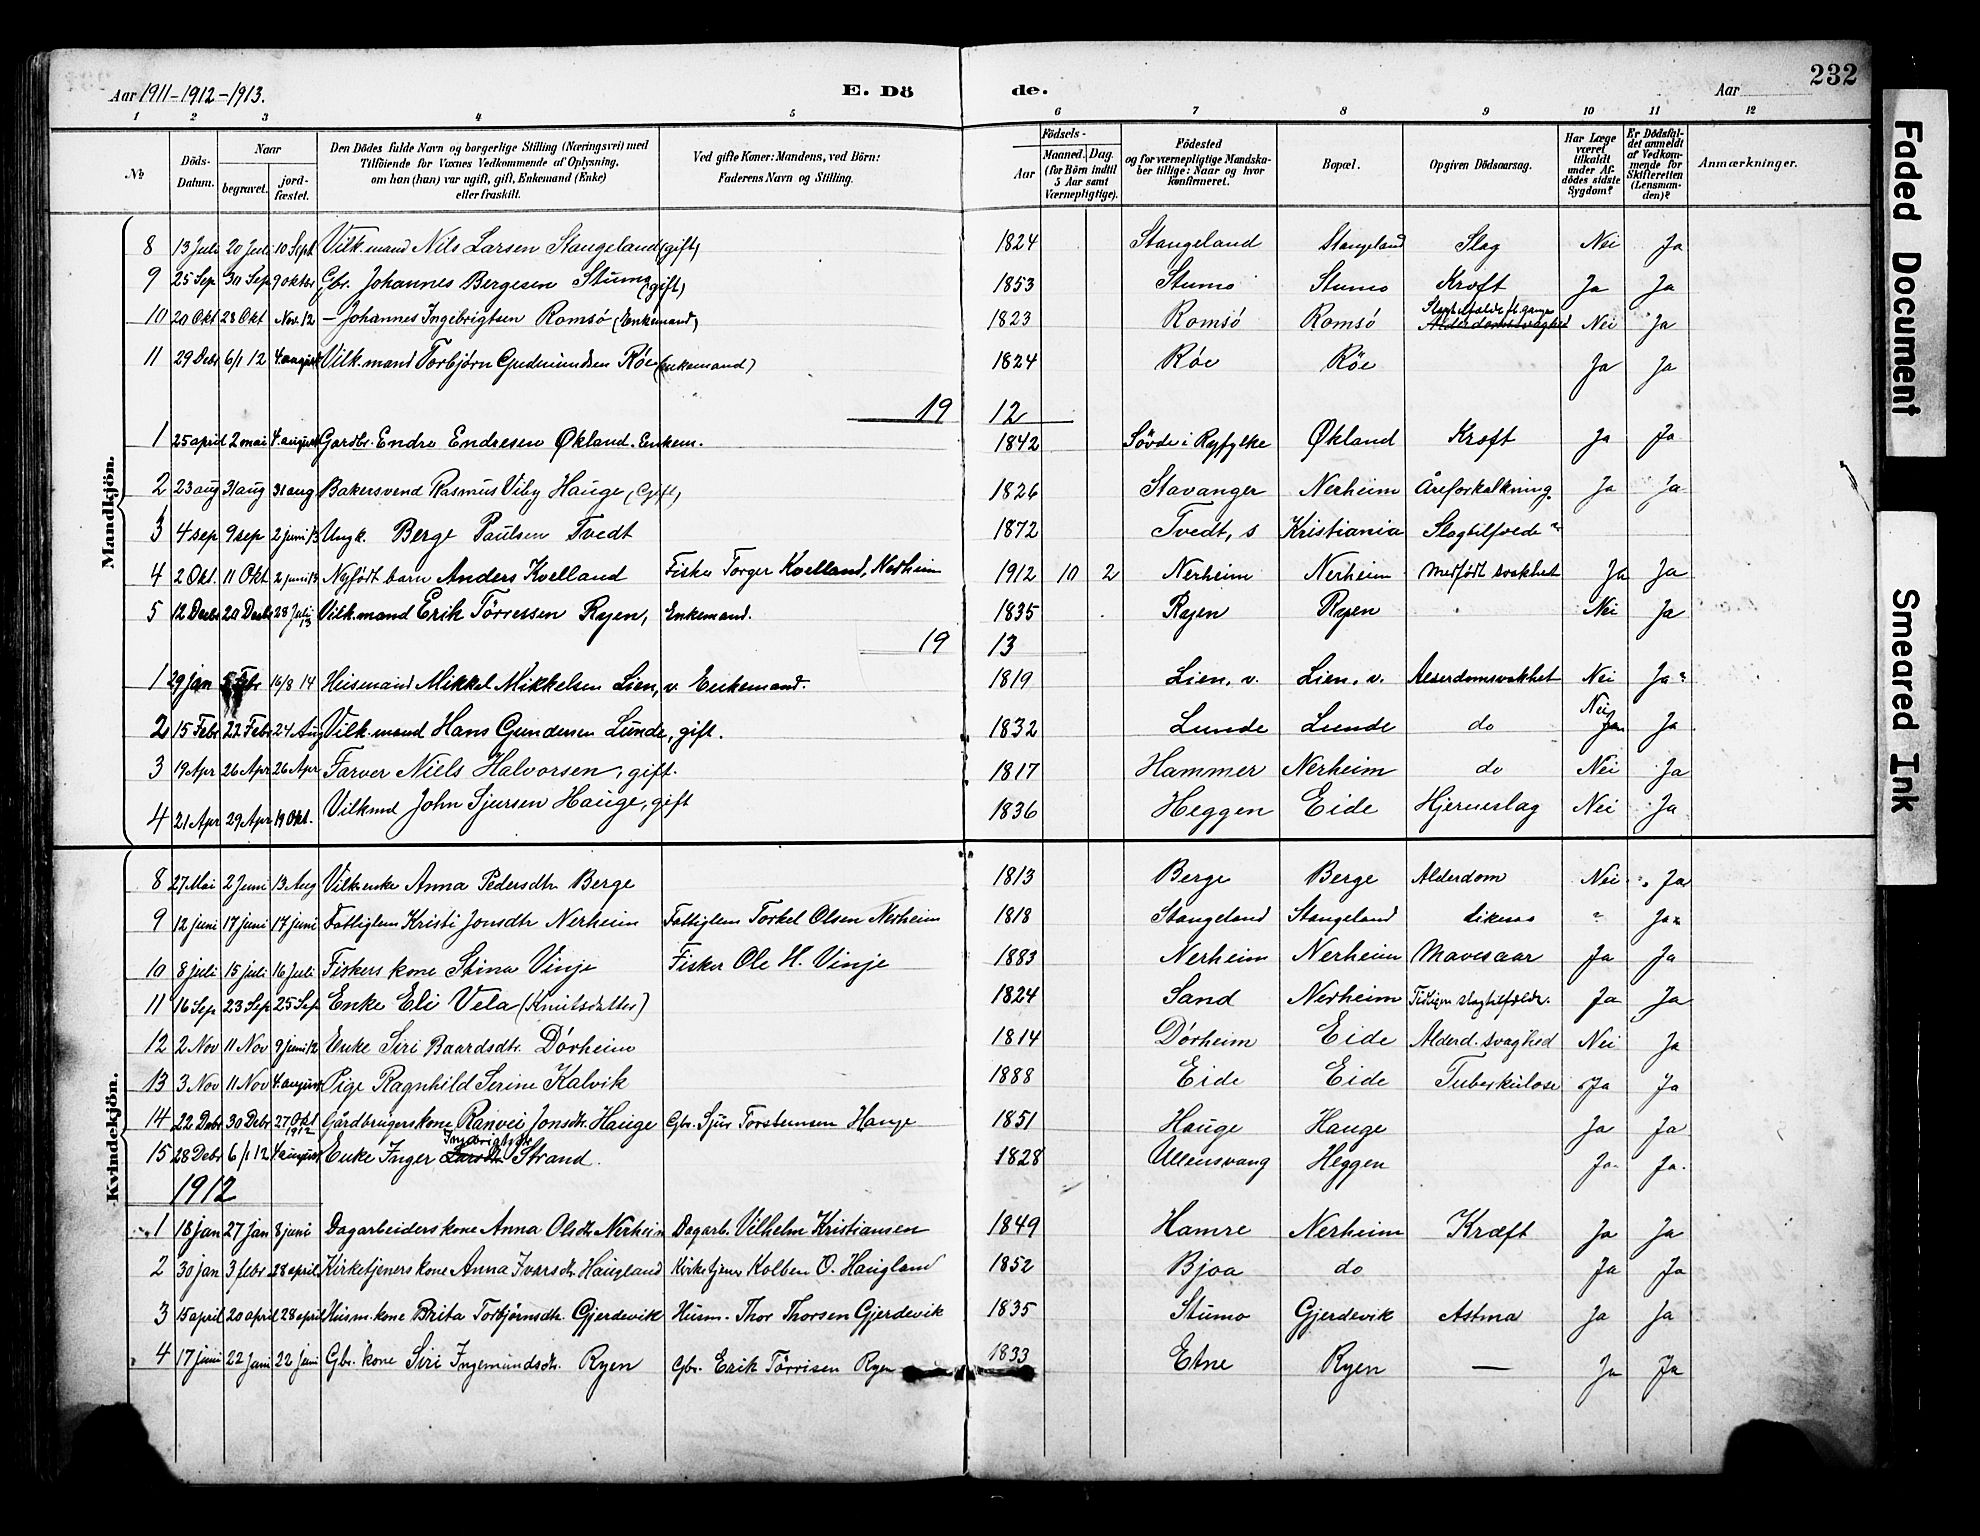 232
Aar 1911-1912-1913. E. Dö de. Aar
1 2 3 4 5 6 7 8 9 10 11 12
№ Döds-Datum. Naar begravet. jordfæstet. Den Dödes fulde Navn og borgerlige Stilling (Næringsvei) med Tilföiende for Voxnes Vedkommende af Oplysning, om han (hun) var ugift, gift, Enkemand (Enke) eller fraskilt. Ved gifte Koner: Mandens, ved Börn: Faderens Navn og Stilling. Födsels- Aar Maaned. Dag. (for Börn indtil 5 Aar samt Værnepligtige). Födested og for værnepligtige Mandskaber tillige: Naar og hvor konfirmeret. Bopæl. Opgiven Dödsaarsag. Har Læge været tilkaldt under Afdödes sidste Sygdom? Er Dödsfaldet anmeldt af Vedkommende for Skifteretten (Lensmanden)? Anmærkninger.
Mandkjön.
8 13 Juli 20 Juli 10 Sept Vilk.mand Nils Larsen Stangeland (gift) 1824 Stangeland Stangeland Slag Nei Ja
9 25 Sep 30 Sep 9 oktbr Gbr. Johannes Bergesen Stumo (gift) 1853 Stumo Stumo Kræft Ja Ja
10 20 Okt 28 Okt Nov. 12 - Johannes Ingebrigtsen Romsö (Enkemand) 1823 Romsö Romsö Alderdomssvaghed Nei Ja
11 29 Debr 6/1 12 4. august Vilk.mand Torbjörn Gudmundsen Röe (enkemand) 1824 Röe Röe Ja Ja
19 12
1 25 april 2 mai 4. august Gardbr. Endre Endresen Økland. Enkem. 1842 Sövde i Ryfylke Økland Kræft Ja Ja
2 23 aug 31 aug 31 aug Bakersvend Rasmus Viby Hauge (Gift) 1826 Stavanger Nerheim Åreforkalkning. Ja Ja
3 4 sep 9 sep 2 juni 13 Ungk. Berge Paulsen Tvedt 1872 Tvedt, s Kristiania Slagtilfælde
4 2 Okt. 11 Okt 2 juni 13 Nyfödt barn Anders Kvelland Fisker Torger Kvelland, Nerheim 1912 10 2 Nerheim Nerheim Medfödt svakhet Ja Ja
5 12 Decbr 20 Decbr 28 Juli 13 Vilk.mand Erik Törressen Ryen, Enkemand. 1835 Ryen Ryen Nei Ja
19 13
1 29 jan Febr 16/8 14 Husmand Mikkel Mikkelsen Lien, v. Enkemand. 1819 Lien, v. Lien, v. Alderdomsvakhet Nei Ja
2 15 Febr 22 Febr 24 Aug Vilk.mand Hans Gundersen Lunde, gift. 1832 Lunde Lunde do Nei Ja Ja
3 19 Apr 26 Apr 26 Apr Farver Niels Halvorsen, gift. 1817 Hammer Nerheim do Nei Ja
4 21 Apr 29 Apr 19 Okt. Vilkmd John Sjursen Hauge, gift 1836 Heggen Eide Hjerneslag Nei Ja
Kvindekjön.
8 27 Mai 2 Juni 13 Aug Vilk.enke Anna Pedersdtr Berge 1813 Berge Berge Alderdom Nei Ja
9 12 juni 17 juni 17 juni Fattiglem Kristi Jonsdtr Nerheim Fattiglem Torkel Olsen Nerheim 1818 Stangeland Stangeland likesaa " Ja
10 8 juli 15 juli 16 Juli Fiskers kone Stina Vinje Fisker Ole H. Vinje 1883 Nerheim Nerheim Mavesaar Ja Ja
11 16 Sep 23 Sep 25 Sep Enke Eli Vela (Knutsdatter) 1824 Sand Nerheim slagtilfælde. Ja Ja
12 2 Nov 11 Nov 9 juni 12 Enke Siri Baardsdtr. Dörheim 1814 Dörheim Eide Alderd. svaghed Nei Ja
13 3 Nov 11 Nov 4. august Pige Ragnhild Serine Kalvik 1888 Eide Eide Tuberkulose Ja Ja
14 22 Debr 30 Debr 27 Okt 1912 Gårdbrugerskone Ranvei Jonsdtr. Hauge Gbr. Sjur Torstensen Hauge 1851 Hauge Hauge Ja Ja
15 28 Debr 6/1 12 4 august Enke Inger Larsdtr Ingebrigtsdtr Strand. 1828 Ullensvang Heggen Ja Ja.
1912
1 18 jan 27 Jan 8 juni Dagarbeiders kone Anna Olsdtr Nerheim Dagarb. Vilhelm Kristiansen 1849 Hamre Nerheim Kræft Ja Ja
2 30 jan 3 febr 28 april Kirketjeners kone Anna Ivarsdtr. Haugland Kirketjener Kolben O. Haugland 1852 Bjoa do Ja Ja
3 15 april 20 april 28 april Husm.kone Brita Torbjörnsdtr. Gjerdevik Husm. Thor Thorsen Gjerdevik 1835 Stumo Gjerdevik Astma Ja Ja
4 17 juni 22 Juni 22 Juni Gbr. kone Siri Ingemundsdtr. Ryen Gbr. Erik Törrisen Ryen 1833 Etne Ryen — Ja Ja
Faded Document
Smeared Ink